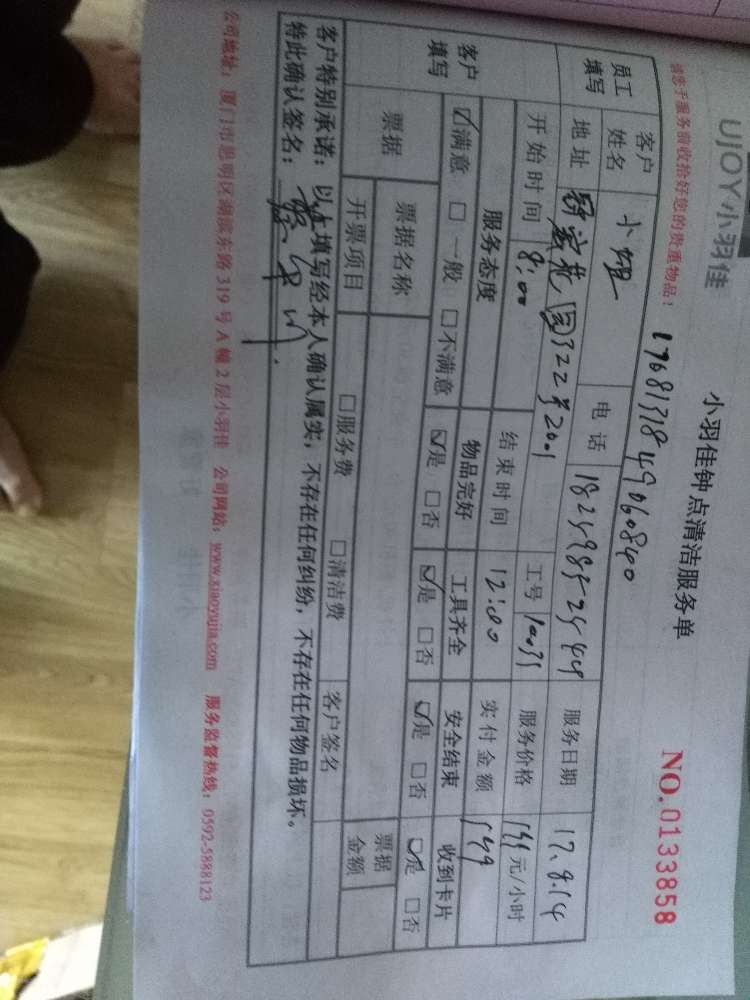 UJOY小羽佳
小羽佳钟点清洁服务单
NO.0133858
请您于服务前收拾好您的贵重物品:
员工填写
客户姓名 小姐 电话 18259852544 服务日期 17.8.14
地址 322号201 工号 服务价格 元/小时
开始时间 8:00 结束时间 12:00 实付金额 149
客户填写
服务态度 物品完好 工具齐全 安全结束 收到卡片
☑满意 □一般 □不满意 ☑是 □否 ☑是 □否 ☑是 □否 ☑是 □否
票据 票据名称 票据金额
开票项目 □服务费 □清洁费 客户签名
客户特别承诺:以上填写经本人确认属实,不存在任何纠纷,不存在任何物品损坏。
特此确认签名:
公司地址:厦门市思明区湖滨东路319号A幢2层小羽佳 公司网站:www.xiaoyujia.com 服务监督热线:0592-5888123